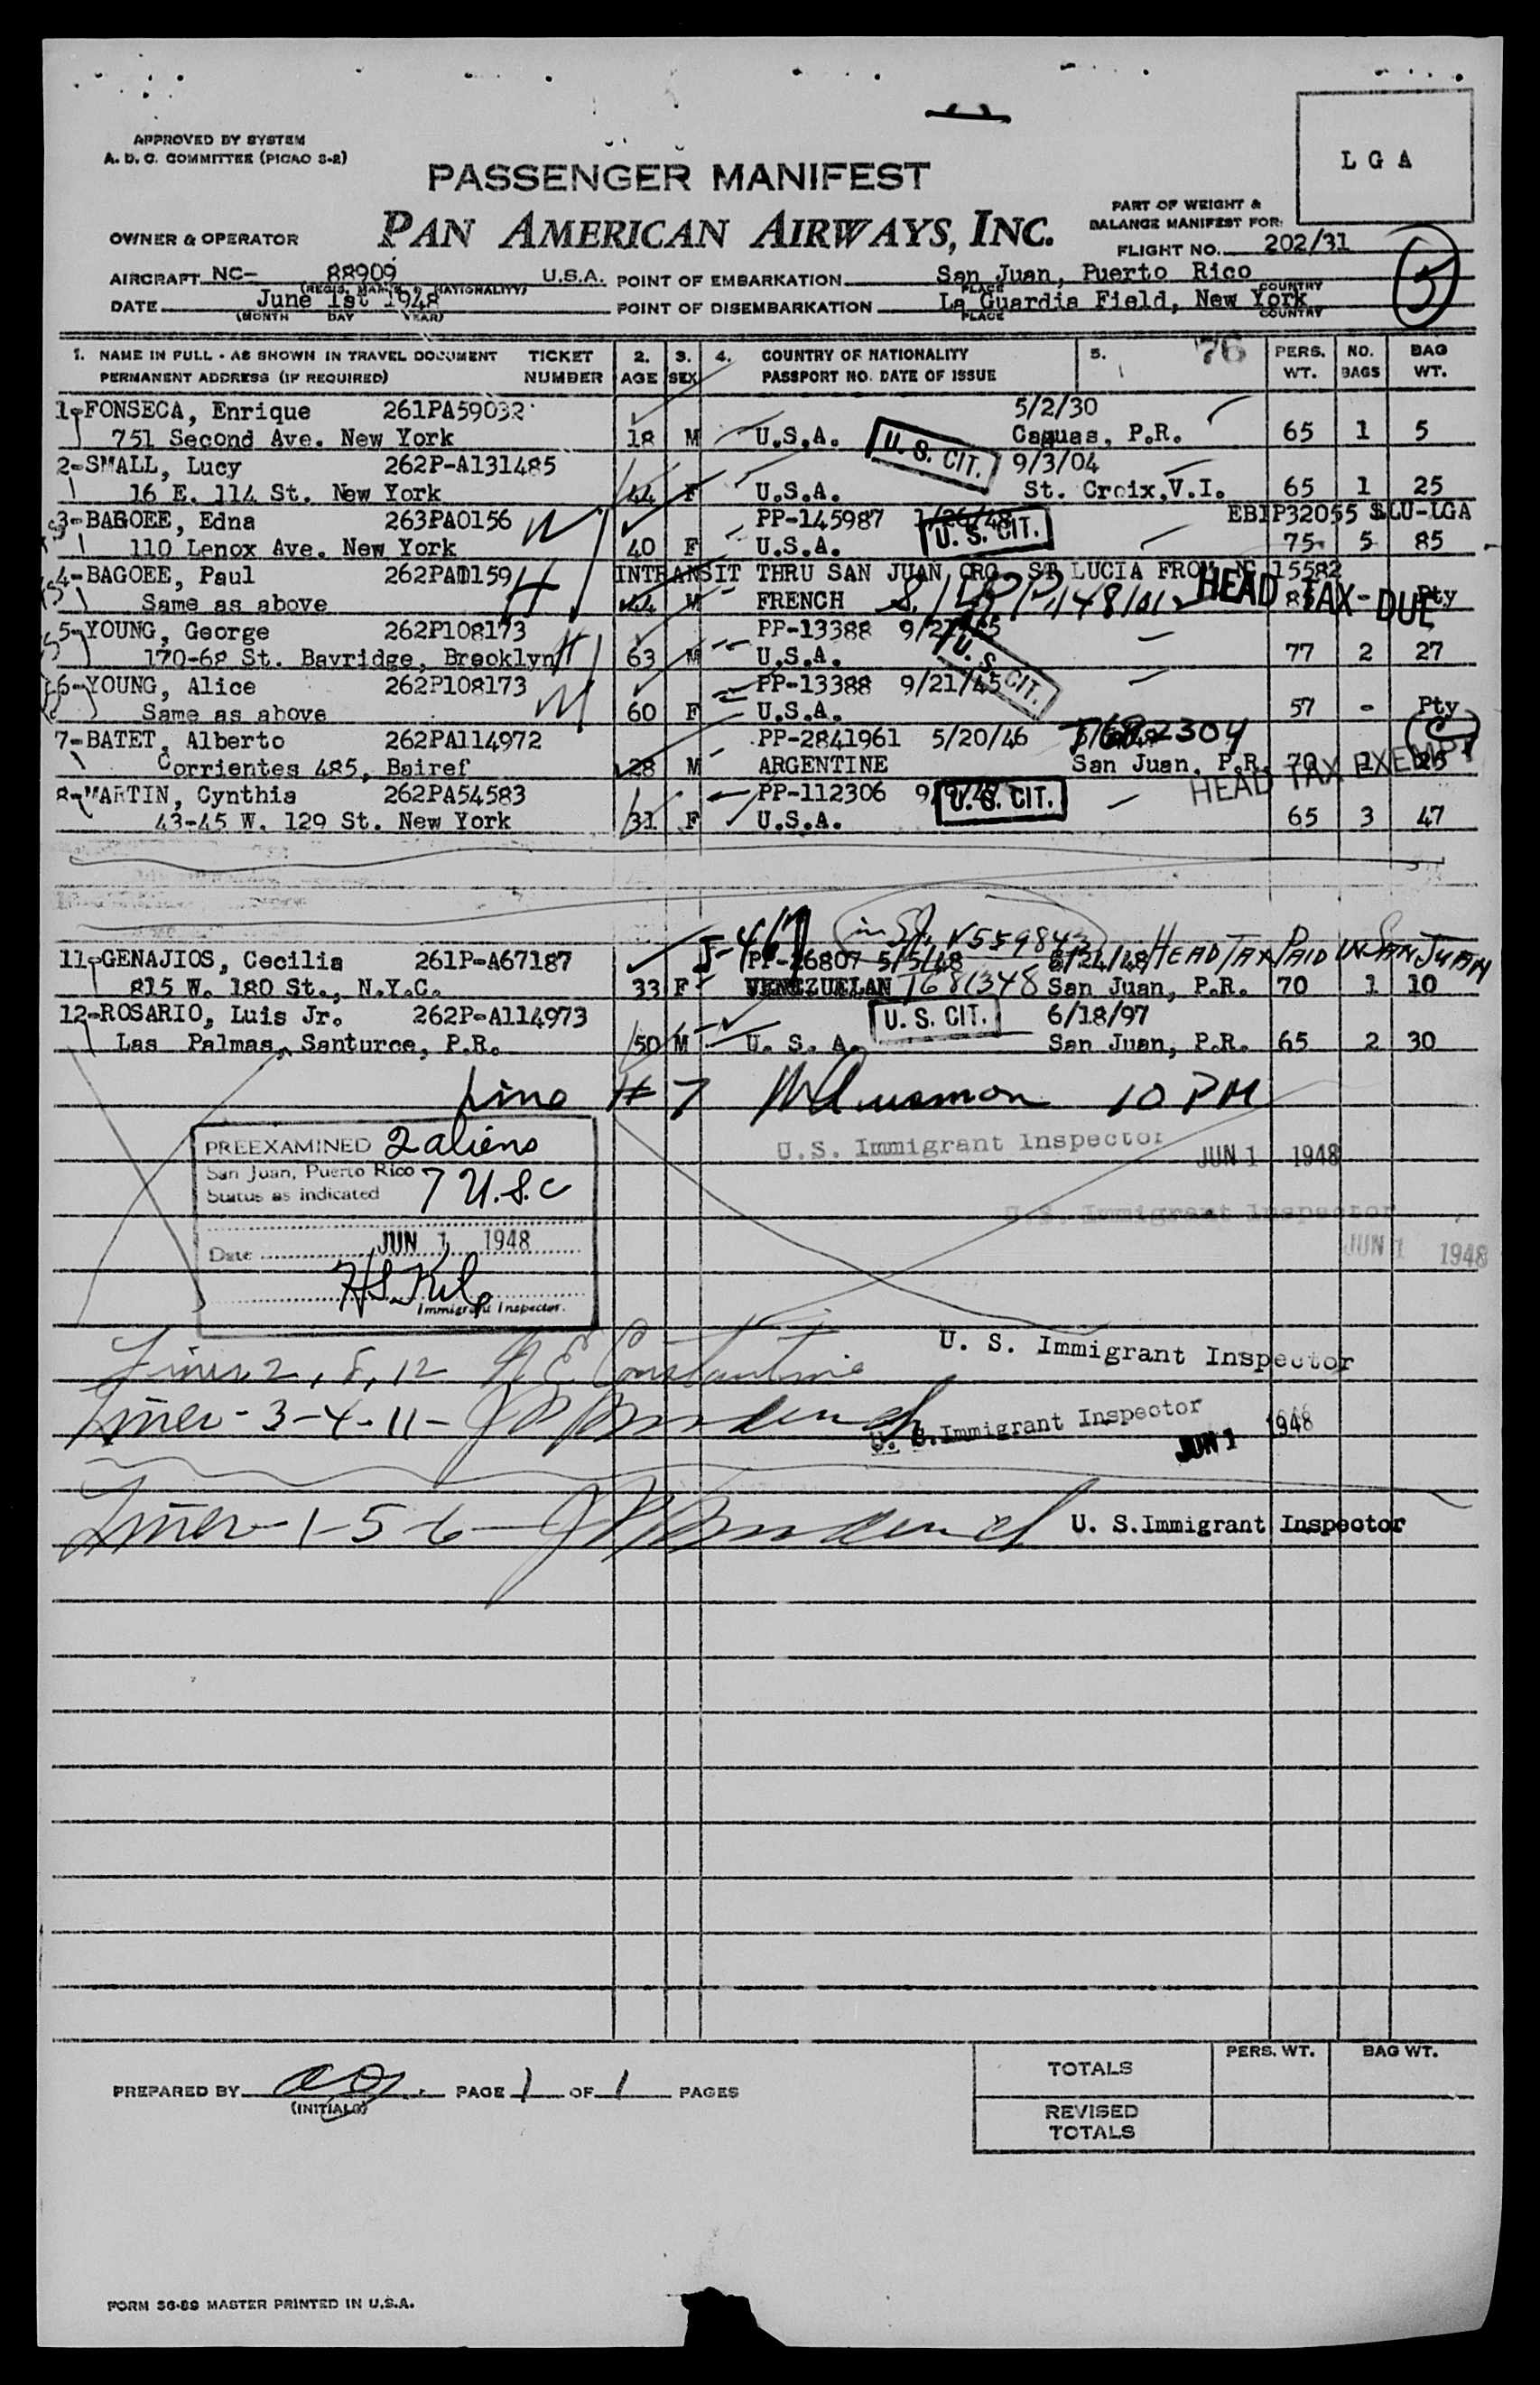 APPROVED BY SYSTEM
A. D. C. COMMITTEE (PICAO S-2)
LGA
PASSENGER MANIFEST
PAN AMERICAN AIRWAYS, INC.
PART OF WEIGHT &
BALANCE MANIFEST FOR:
OWNER & OPERATOR
FLIGHT NO. 202/31
5
AIRCRAFT NC- 88909 U.S.A. POINT OF EMBARKATION San Juan, Puerto Rico
(REGIS. MARKS & NATIONALITY) PLACE COUNTRY
DATE June 1st 1948 POINT OF DISEMBARKATION La Guardia Field, New York
(MONTH DAY YEAR) PLACE COUNTRY
1. NAME IN FULL - AS SHOWN IN TRAVEL DOCUMENT TICKET 2. 3. 4. COUNTRY OF NATIONALITY 5. 76 PERS. NO. BAG
PERMANENT ADDRESS (IF REQUIRED) NUMBER AGE SEX PASSPORT NO. DATE OF ISSUE WT. BAGS WT.
1-FONSECA, Enrique 261PA59032 5/2/30
751 Second Ave. New York 18 M U.S.A. U. S. CIT. Caguas, P.R. 65 1 5
2-SMALL, Lucy 262P-A131485 9/3/04
16 E. 114 St. New York 44 F U.S.A. St. Croix,V.I. 65 1 25
3-BAGOEE, Edna 263PA0156 PP-145987 1/26/48 EBIP32055 SLU-LGA
110 Lenox Ave. New York 40 F U.S.A. U. S. CIT. 75 5 85
4-BAGOEE, Paul 262PA0159 INTRANSIT THRU SAN JUAN ORG. ST LUCIA FROM NC 15582
Same as above 44 M FRENCH HEAD TAX DUE - Pty
5-YOUNG, George 262P108173 PP-13388 9/21/45
170-68 St. Bayridge, Brooklyn 63 M U.S.A. U. S. CIT. 77 2 27
6-YOUNG, Alice 262P108173 PP-13388 9/21/45
Same as above 60 F U.S.A. 57 - Pty
7-BATET, Alberto 262PA114972 PP-2841961 5/20/46
Corrientes 485, Bairef 28 M ARGENTINE San Juan, P.R. 70 1 26
HEAD TAX EXEMPT
8-MARTIN, Cynthia 262PA54583 PP-112306 U. S. CIT.
43-45 W. 129 St. New York 31 F U.S.A. 65 3 47
V559843
11-GENAJIOS, Cecilia 261P-A67187 PP-26807 5/5/48 5/24/48 HEAD TAX PAID IN SAN JUAN
815 W. 180 St., N.Y.C. 33 F VENEZUELAN T681348 San Juan, P.R. 70 1 10
12-ROSARIO, Luis Jr. 262P-A114973 U. S. CIT. 6/18/97
Las Palmas, Santurce, P.R. 50 M U. S. A. San Juan, P.R. 65 2 30
Line # 7 10 PM
U.S. Immigrant Inspector JUN 1 1948
PREEXAMINED 2 aliens
San Juan, Puerto Rico
Status as indicated 7 U.S.C
U.S. Immigrant Inspector
JUN 1 1948
Date JUN 1 1948
Immigrant Inspector.
Lines 2, 8, 12 Constantine U. S. Immigrant Inspector
Lines - 3-4-11- U. S. Immigrant Inspector JUN 1 1948
Lines - 1-5-6- U. S. Immigrant Inspector
PREPARED BY PAGE 1 OF 1 PAGES
(INITIALS)
PERS. WT. BAG WT.
TOTALS
REVISED
TOTALS
FORM 36-89 MASTER PRINTED IN U.S.A.